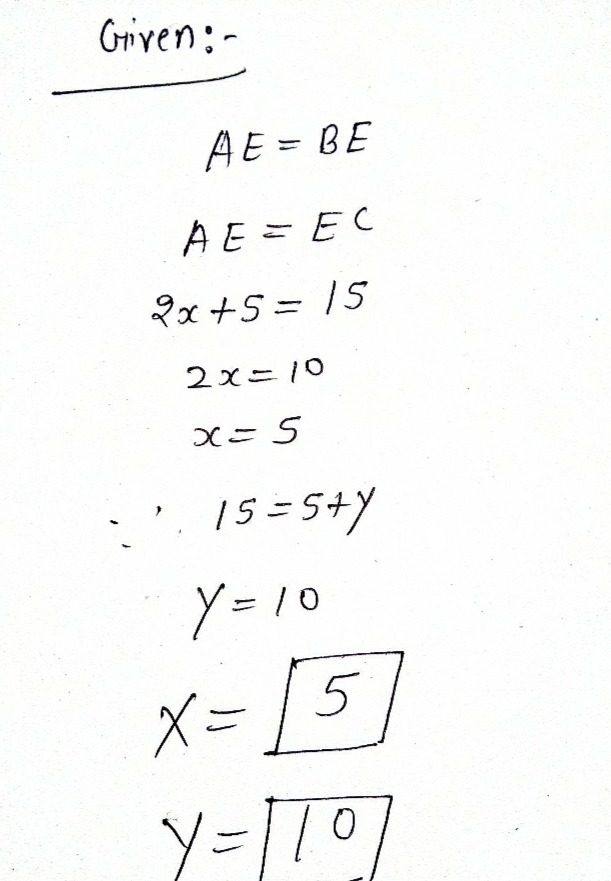 Given:-
AE = BE
AE = EC
2x+5 = 15
2x=10
x= 5
∴ 15=5+y
y=10
x= 5
y= 10